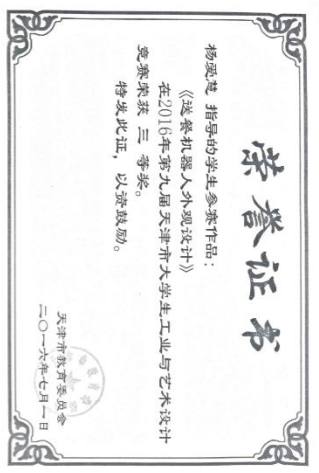 荣誉证书
杨爱慧 指导的学生参赛作品：
《送餐机器人外观设计》
在2016年第九届天津市大学生工业与艺术设计
竞赛荣获 三 等奖。
特发此证，以资鼓励。
天津市教育委员会
二〇一六年七月一日